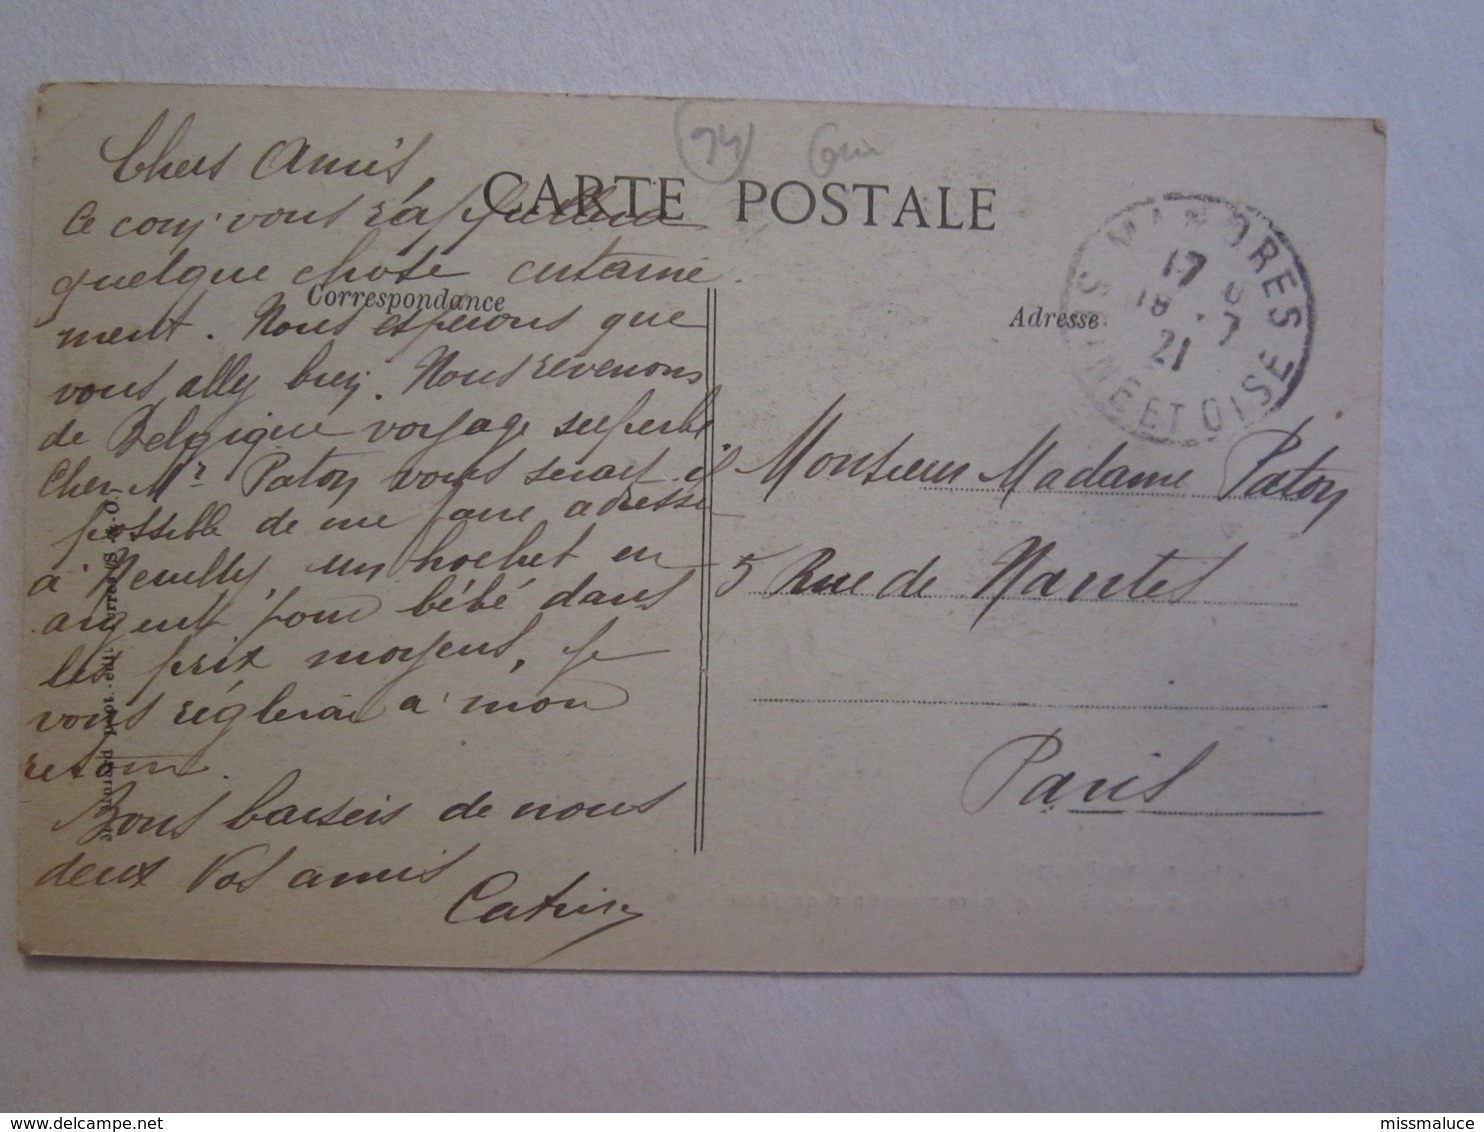 94
CARTE POSTALE
Correspondance
Adresse
MANDRES
17
18 . 7
21
SEINE ET OISE
Chers Amis,
Ce coin vous rappellera
quelque chose certaine
ment. Nous espérons que
vous allez bien. Nous revenons
de Belgique voyage superbe
Cher Mr Paton vous serait il
possible de me faire adresser
à Neuilly, un hochet en
argent pour bébé dans
les prix moyens, je
vous réglerai à mon
retour.
Bons baisers de nous
deux Vos amis
Monsieur Madame Paton
5 Rue de Nantes
Paris
missmaluce
www.delcampe.net